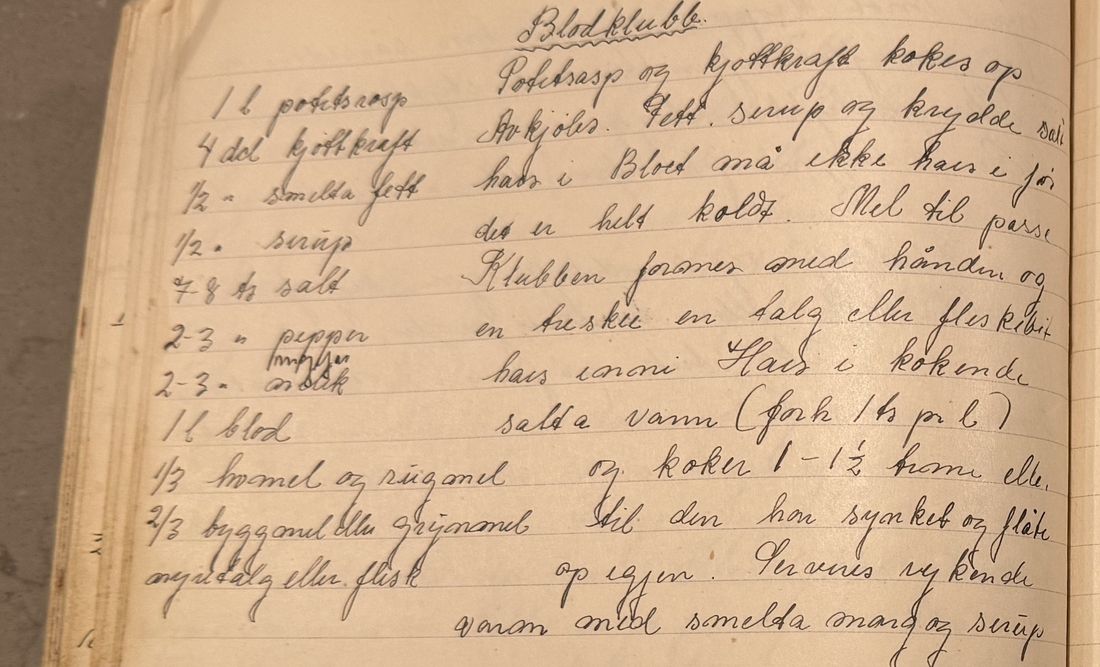 Blodklubb.
1 l potetsrasp
4 del kjøttkraft
1/2 " smelta fett
1/2 " serup
7-8 ts salt
2-3 " pepper
2-3 "
1 l blod
1/3 hvmel og rugmel
2/3 byggmel eller grynmel
nyretalg eller flesk
Potetsasp og kjøttkraft kokes op
Avkjøles. Fett. serup og krydde salt
haes i Bloet må ikke haes i før
det er helt koldt. Mel til passe
Klubben formes med hånden og
en treskei en talg eller fleskebit
haes inni Haes i kokende
salta vann (forh 1 ts pr l)
og koker 1 - 1 1/2 time elle.
til den har synket og fløte
op igjen. Serveres rykende
varm med smelta marg og serup